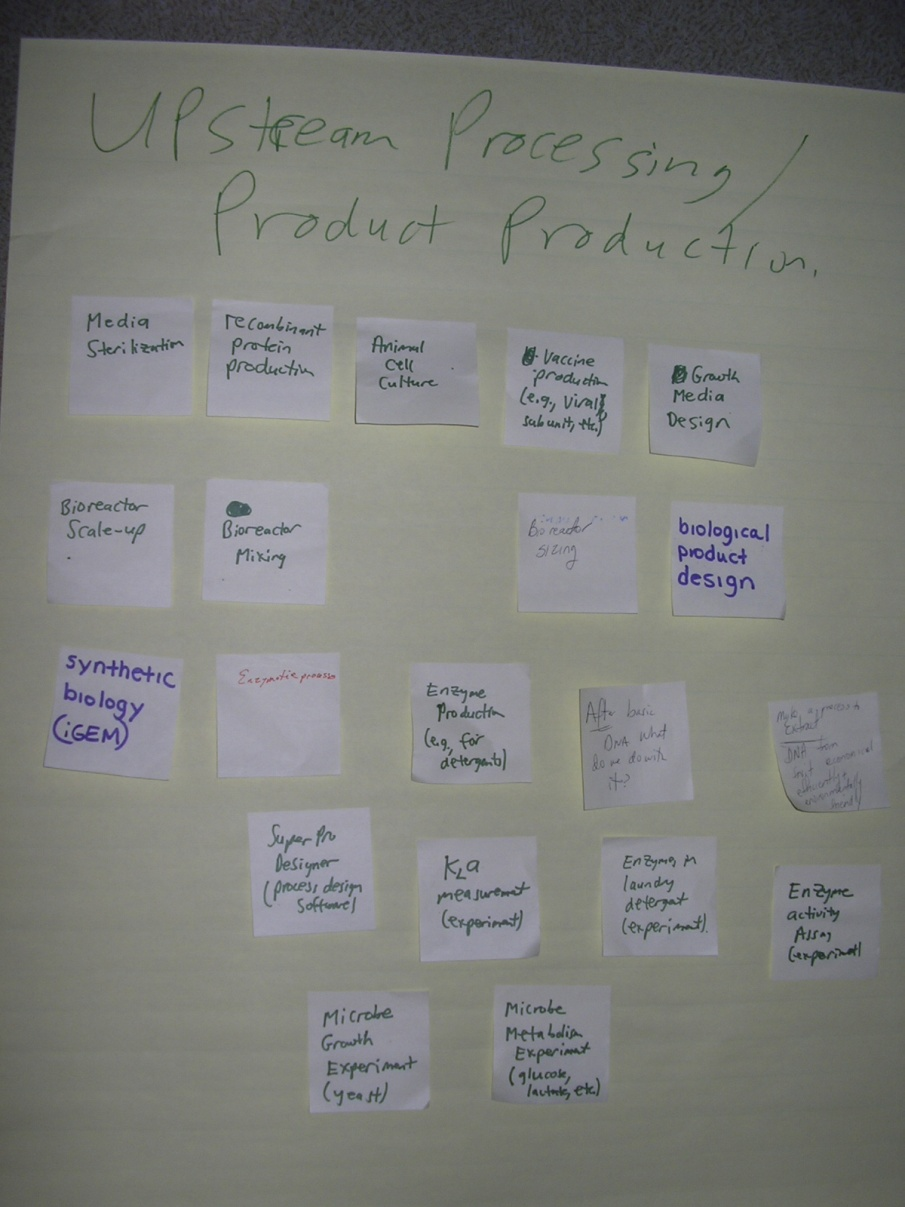 Upstream Processing/
Product Production.
Media
Sterilization
recombinant
protein
production
Animal
Cell
Culture
Vaccine
production
(e.g., viral,
subunit, etc.)
Growth
Media
Design
Bioreactor
Scale-up
Bioreactor
Mixing
Bioreactor
sizing
biological
product
design
synthetic
biology
(iGEM)
Enzymatic process
Enzyme
Production
(e.g., for
detergents)
After basic
DNA what
do we do with
it?
Make a process to
Extract
DNA from
fruit economical
efficiently +
environmentally
friendly
Super Pro
Designer
(process design
software)
KLa
measurement
(experiment)
Enzymes in
laundry
detergent
(experiment).
Enzyme
activity
Assay
(experiment)
Microbe
Growth
Experiment
(yeast)
Microbe
Metabolism
Experiment
(glucose,
lactate, etc)